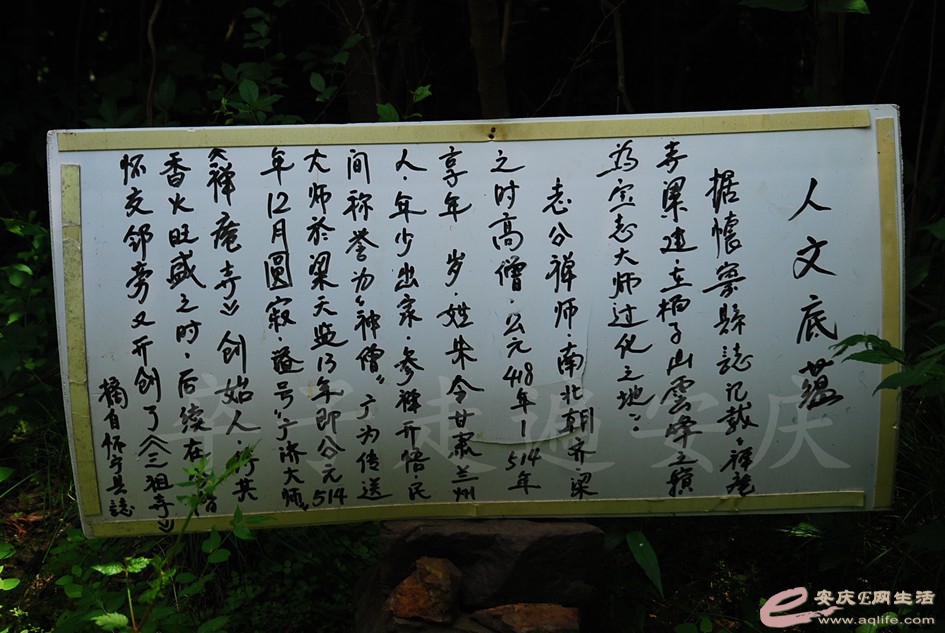 人文底蕴
据懷寧縣誌记载·禅庵
寺梁建·在栢子山雲峰之巔
為宝志大师过化之地··
志公禅师·南北朝齐梁
之时高僧·公元418年-514年
享年 岁·姓朱今甘肃兰州
人·年少出家·参禅开悟民
间称誉为"神僧"广为传送
大师於梁天监13年即公元514
年12月圆寂·谥号"广济大师"
《禅庵寺》创始人·待其
香火旺盛之时·后续在
怀交邻旁又开创了《三祖寺》
摘自怀宁县誌
辛子走遍安庆
安庆E网生活
www.aqlife.com